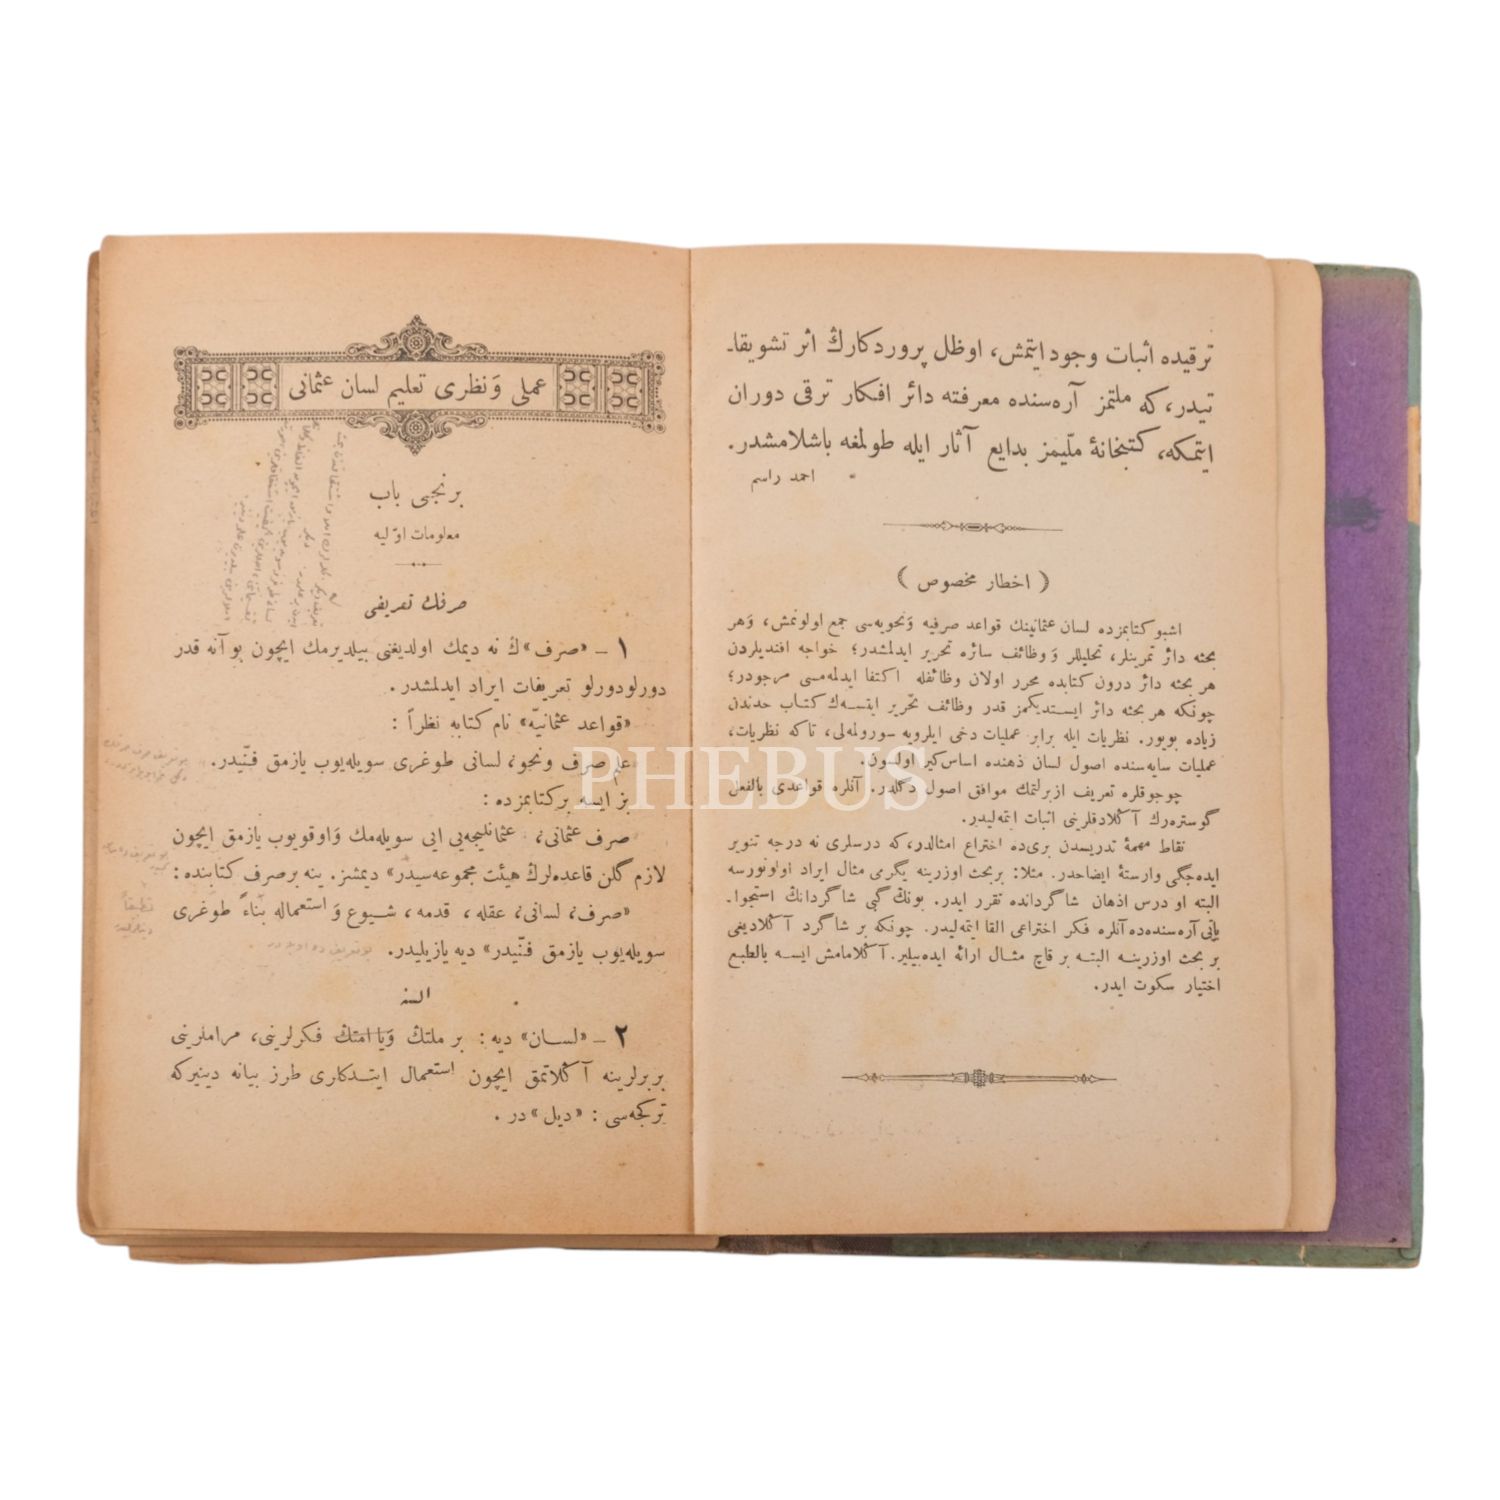 ترقیده اثبات وجود ایتمش، اوظل پروردکارك اثر تشویقا-
تیدر، که ملتمز آره‌سنده معرفته دائر افکار ترقی دوران
ایتمکه، کتبخانهٔ ملّیمز بدایع آثار ایله طولمغه باشلامشدر.
احمد راسم
( اخطار مخصوص )
اشبو کتابمزده لسان عثمانینك قواعد صرفیه وَنحویه‌سی جمع اولونمش، وَهر
بحثه دائر تمرینلر، تحلیللر وَ وظائف سائره تحریر ایدلمشدر؛ خواجه افندیلردن
هر بحثه دائر درون کتابده محرر اولان وظائفله اکتفا ایدلمه‌مسی مرجودر؛
چونکه هر بحثه دائر ایستدیکمز قدر وظائف تحریر ایتسه‌ك کتاب حدندن
زیاده بویور. نظریات ایله برابر عملیات دخی ایلرویه سورولمه‌لی، تاکه نظریات،
عملیات سایه‌سنده اصول لسان ذهنده اساس‌کیر اولسون.
چوجوقلره تعریف ازبرلتمك موافق اصول دکلدر. آنلره قواعدی بالفعل
گوستره‌رك آكلادقلرینی اثبات ایتمه‌لیدر.
نقاط مهمهٔ تدریسدن بری‌ده اختراع امثالدر، که درسلری نه درجه تنویر
ایده‌جگی وارستهٔ ایضاحدر. مثلا: بربحث اوزرینه یگرمی مثال ایراد اولونورسه
البته او درس اذهان شاگردانده تقرر ایدر. بونك گبی شاگردانك استجوا-
باتی آره‌سنده‌ده آنلره فکر اختراعی القا ایتمه‌لیدر. چونکه بر شاگرد آكلادیغی
بر بحث اوزرینه البته بر قاچ مثال ارائه ایده‌بیلیر. آكلامامش ایسه بالطبع
اختیار سکوت ایدر.
عملی وَنظری تعلیم لسان عثمانی
برنجی باب
معلومات اوّلیه
صرفك تعریفی
۱ – «صرف» ك نه دیمك اولدیغنی بیلدیرمك ایچون بوآنه قدر
دورلودورلو تعریفات ایراد ایدلمشدر.
«قواعد عثمانیّه» نام کتابه نظراً :
«علم صرف ونحو، لسانی طوغری سویله‌یوب یازمق فنّیدر.
بز ایسه برکتابمزده :
صرف عثمانی، عثمانلیجه‌یی ایی سویله‌مك وَاوقویوب یازمق ایچون
لازم گلن قاعده‌لرك هیئت مجموعه‌سیدر» دیمشز. ینه برصرف کتابنده :
«صرف، لسانی، عقله، قدمه، شیوع وَ استعماله بناءً طوغری
سویله‌یوب یازمق فنّیدر» دیه یازیلیدر.
السنه
۲ – «لسان» دیه : بر ملتك وَیاامتك فکرلرینی، مراملرینی
بربرلرینه آكلاتمق ایچون استعمال ایتدکاری طرز بیانه دینیرکه
ترکجه‌سی : «دیل» در .
PHEBUS